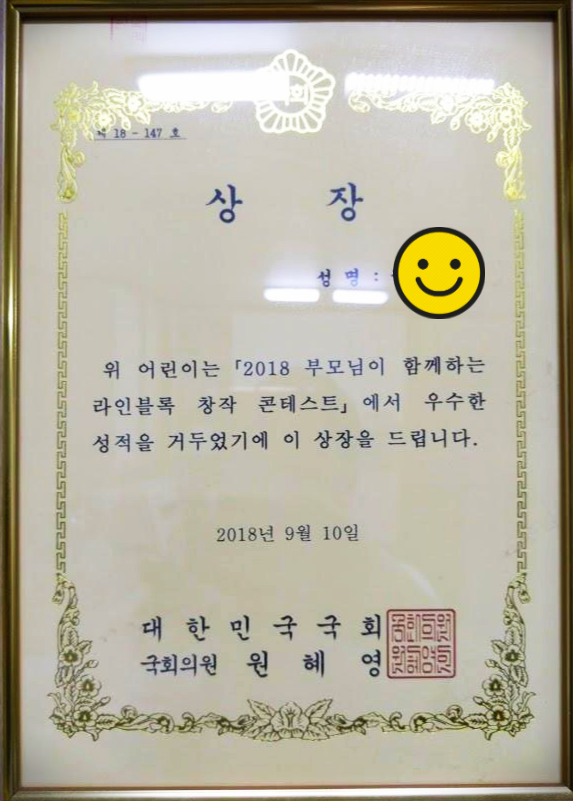 제 18 - 147 호
상 장
성 명 :
위 어린이는 「2018 부모님이 함께하는
라인블록 창작 콘테스트」에서 우수한
성적을 거두었기에 이 상장을 드립니다.
2018년 9월 10일
대 한 민 국 국 회
국회의원 원 혜 영